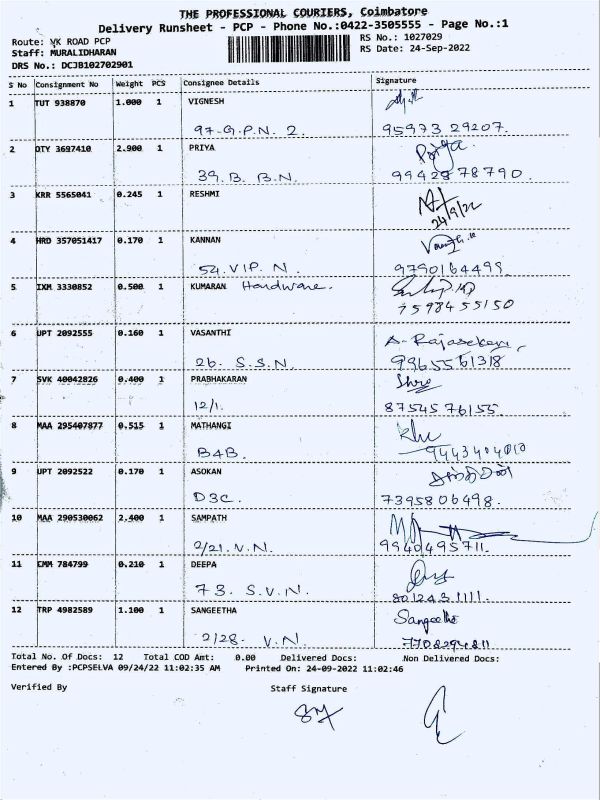 THE PROFESSIONAL COURIERS, Coimbatore
Delivery Runsheet - PCP - Phone No.:0422-3505555 - Page No.:1
Route: VK ROAD PCP
RS No.: 1027029
Staff: MURALIDHARAN
RS Date: 24-Sep-2022
DRS No.: DCJB102702901
S No Consignment No Weight PCS Consignee Details Signature
1 TUT 938870 1.000 1 VIGNESH
97-G.P.N. 2. 95973 29207.
2 QTY 3697410 2.900 1 PRIYA Priya.
39. B. B.N. 99428 78790.
3 KRR 5565041 0.245 1 RESHMI
24/9/22
4 HRD 357051417 0.170 1 KANNAN
54. VIP. N. 9790164499.
5 IXM 3330852 0.500 1 KUMARAN Hardware.
7598455150
6 UPT 2092555 0.160 1 VASANTHI A. Rajasekari,
26. S.S.N. 9965561318
7 SVK 40042826 0.400 1 PRABHAKARAN Shree
12/1. 87545 76155.
8 MAA 295407877 0.515 1 MATHANGI
B4B. 9443404010
9 UPT 2092522 0.170 1 ASOKAN
D3C. 7395806498.
10 MAA 290530062 2.400 1 SAMPATH
2/21. V.N. 9940495711.
11 CMM 784799 0.210 1 DEEPA
73. S.V.N. 8012431111.
12 TRP 4982589 1.100 1 SANGEETHA Sangeetha
2/28. V.N. 7708294811
Total No. Of Docs: 12 Total COD Amt: 0.00 Delivered Docs: Non Delivered Docs:
Entered By :PCPSELVA 09/24/22 11:02:35 AM Printed On: 24-09-2022 11:02:46
Verified By Staff Signature